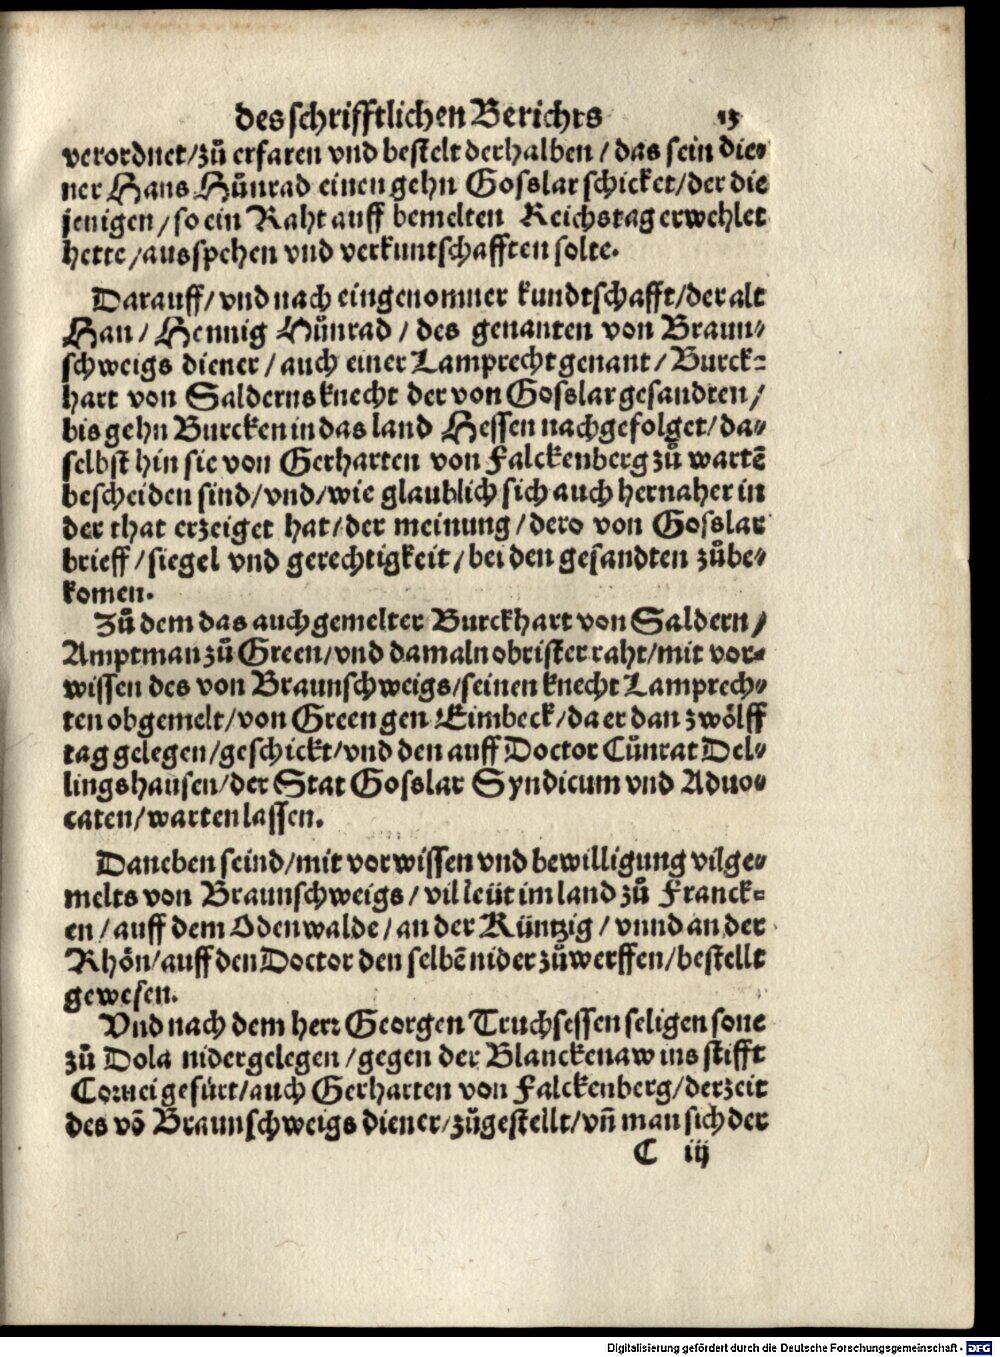 des schrifftlichen Berichts 13
verordnet/zů erfaren vnd bestelt derhalben/das sein die-
ner Hans Hůnrad einen gehn Gosslar schicket/der die
jenigen/so ein Raht auff bemelten Reichstag erwehlet
hette/ausspehen vnd verkuntschafften solte.
Darauff/vnd nach eingenommer kundtschafft/der alt
Han/Hennig Hůnrad/des genanten von Braun-
schweigs diener/auch einer Lamprecht genant/Burck-
hart von Salderns knecht der von Gosslar gesandten/
bis gehn Burcken in das land Hessen nachgefolget/da-
selbst hin sie von Gerharten von Falckenberg zů wartē
bescheiden sind/vnd/wie glaublich sich auch hernaher in
der that erzeiget hat/der meinung/dero von Gosslar
brieff/siegel vnd gerechtigkeit/bei den gesandten zůbe-
komen.
Zů dem das auch gemelter Burckhart von Saldern/
Amptman zů Green/vnd damaln obrister raht/mit vor-
wissen des von Braunschweigs/seinen knecht Lamprech-
ten obgemelt/von Green gen Eimbeck/da er dan zwölff
tag gelegen/geschickt/vnd den auff Doctor Cůnrat Del-
lingshausen/der Stat Gosslar Syndicum vnd Aduo-
caten/warten lassen.
Daneben seind/mit vorwissen vnd bewilligung vilge-
melts von Braunschweigs/vil leüt im land zů Franck-
en/auff dem Odenwalde/an der Küntzig/vnnd an der
Rhön/auff den Doctor den selbē nider zůwerffen/bestellt
gewesen.
Vnd nach dem herr Georgen Truchsessen seligen sone
zů Dola nidergelegen/gegen der Blanckenaw ins stifft
Cornei gefürt/auch Gerharten von Falckenberg/derzeit
des vō Braunschweigs diener/zůgestellt/vn̄ man sich der
C iij
Digitalisierung gefördert durch die Deutsche Forschungsgemeinschaft - DFG